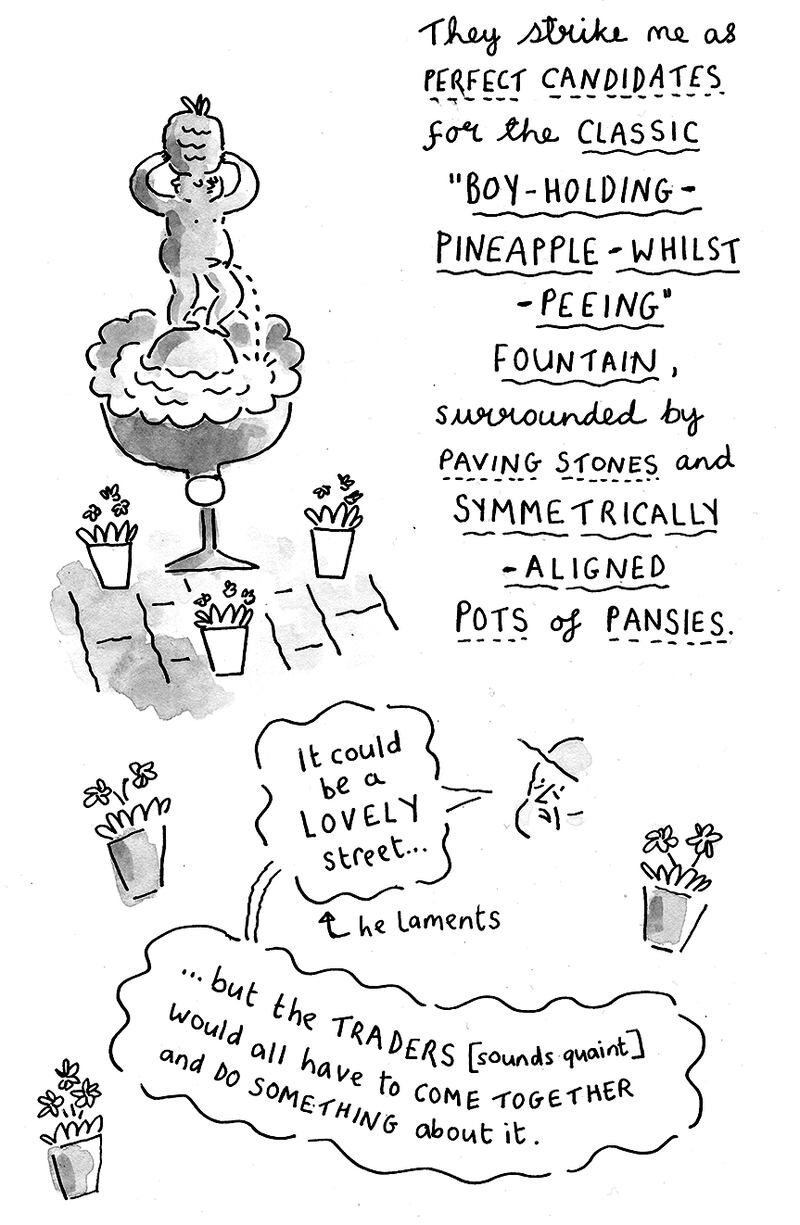 They strike me as
PERFECT CANDIDATES
for the CLASSIC
"BOY-HOLDING-
PINEAPPLE-WHILST
-PEEING"
FOUNTAIN,
surrounded by
PAVING STONES and
SYMMETRICALLY
-ALIGNED
POTS of PANSIES.
It could
be a
LOVELY
street...
he laments
...but the TRADERS [sounds quaint]
would all have to COME TOGETHER
and DO SOMETHING about it.